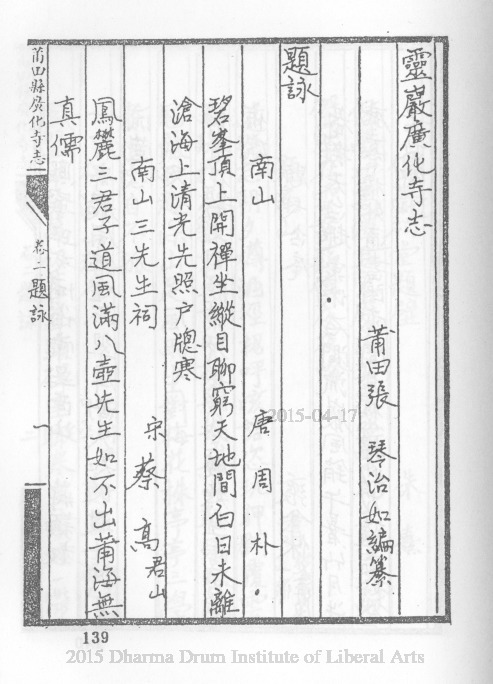 靈巖廣化寺志
莆田張 琴治如編纂
題詠
南山 唐 周 朴
碧峯頂上開禪坐縱目聊窮天地間白日未離
滄海上清光先照户牕寒
南山三先生祠 宋 蔡 高君山
鳳麓三君子道風滿八壺先生如不出莆海無
真儒
莆田縣廣化寺志
卷二 題詠
一
139
2015-04-17
2015 Dharma Drum Institute of Liberal Arts